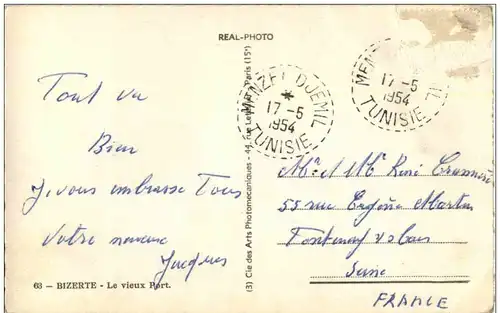 REAL-PHOTO
MENZEL DJEMIL
17 -5
1954
TUNISIE
17 -5
1954
TUNISIE
Tout va
Bien
Je vous embrasse Tous
Votre neveu
Jacques
63 — BIZERTE - Le vieux Port.
(3) Cie des Arts Photomécaniques - 44, rue Letellier - Paris (15e)
Mr et Mme René
55 rue Eugène Martin
Fontenay s/s Bois
Seine
FRANCE